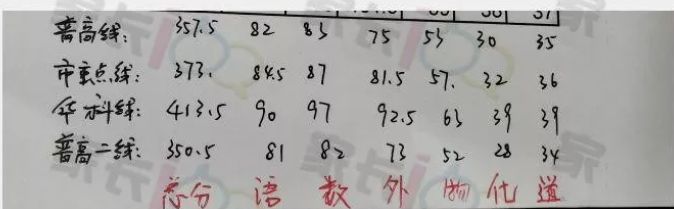 普高线: 357.5 82 83 75 53 30 35
市重点线: 373. 84.5 87 81.5 57. 32 36
华科线: 413.5 90 97 92.5 63 39 39
普高二线: 350.5 81 82 73 52 28 34
总分 语 数 外 物 化 道